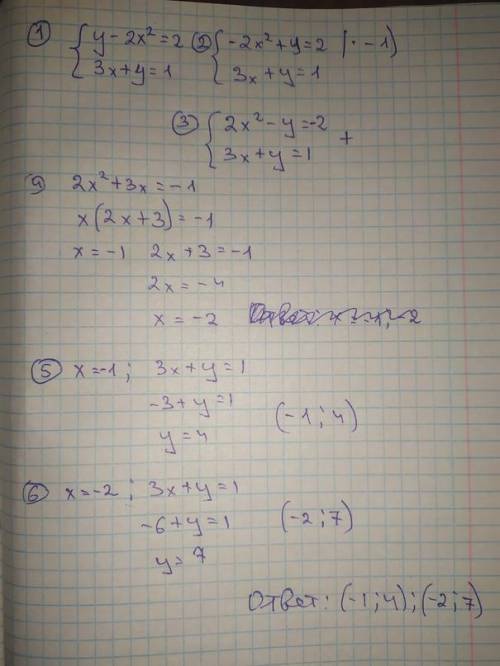 ① { y - 2x² = 2 ② { -2x² + y = 2 | · -1)
3x + y = 1 3x + y = 1
③ { 2x² - y = -2
3x + y = 1 +
④ 2x² + 3x = -1
x(2x + 3) = -1
x = -1 2x + 3 = -1
2x = -4
x = -2
⑤ x = -1; 3x + y = 1
-3 + y = 1
y = 4 (-1; 4)
⑥ x = -2; 3x + y = 1
-6 + y = 1 (-2; 7)
y = 7
Ответ: (-1; 4); (-2; 7)